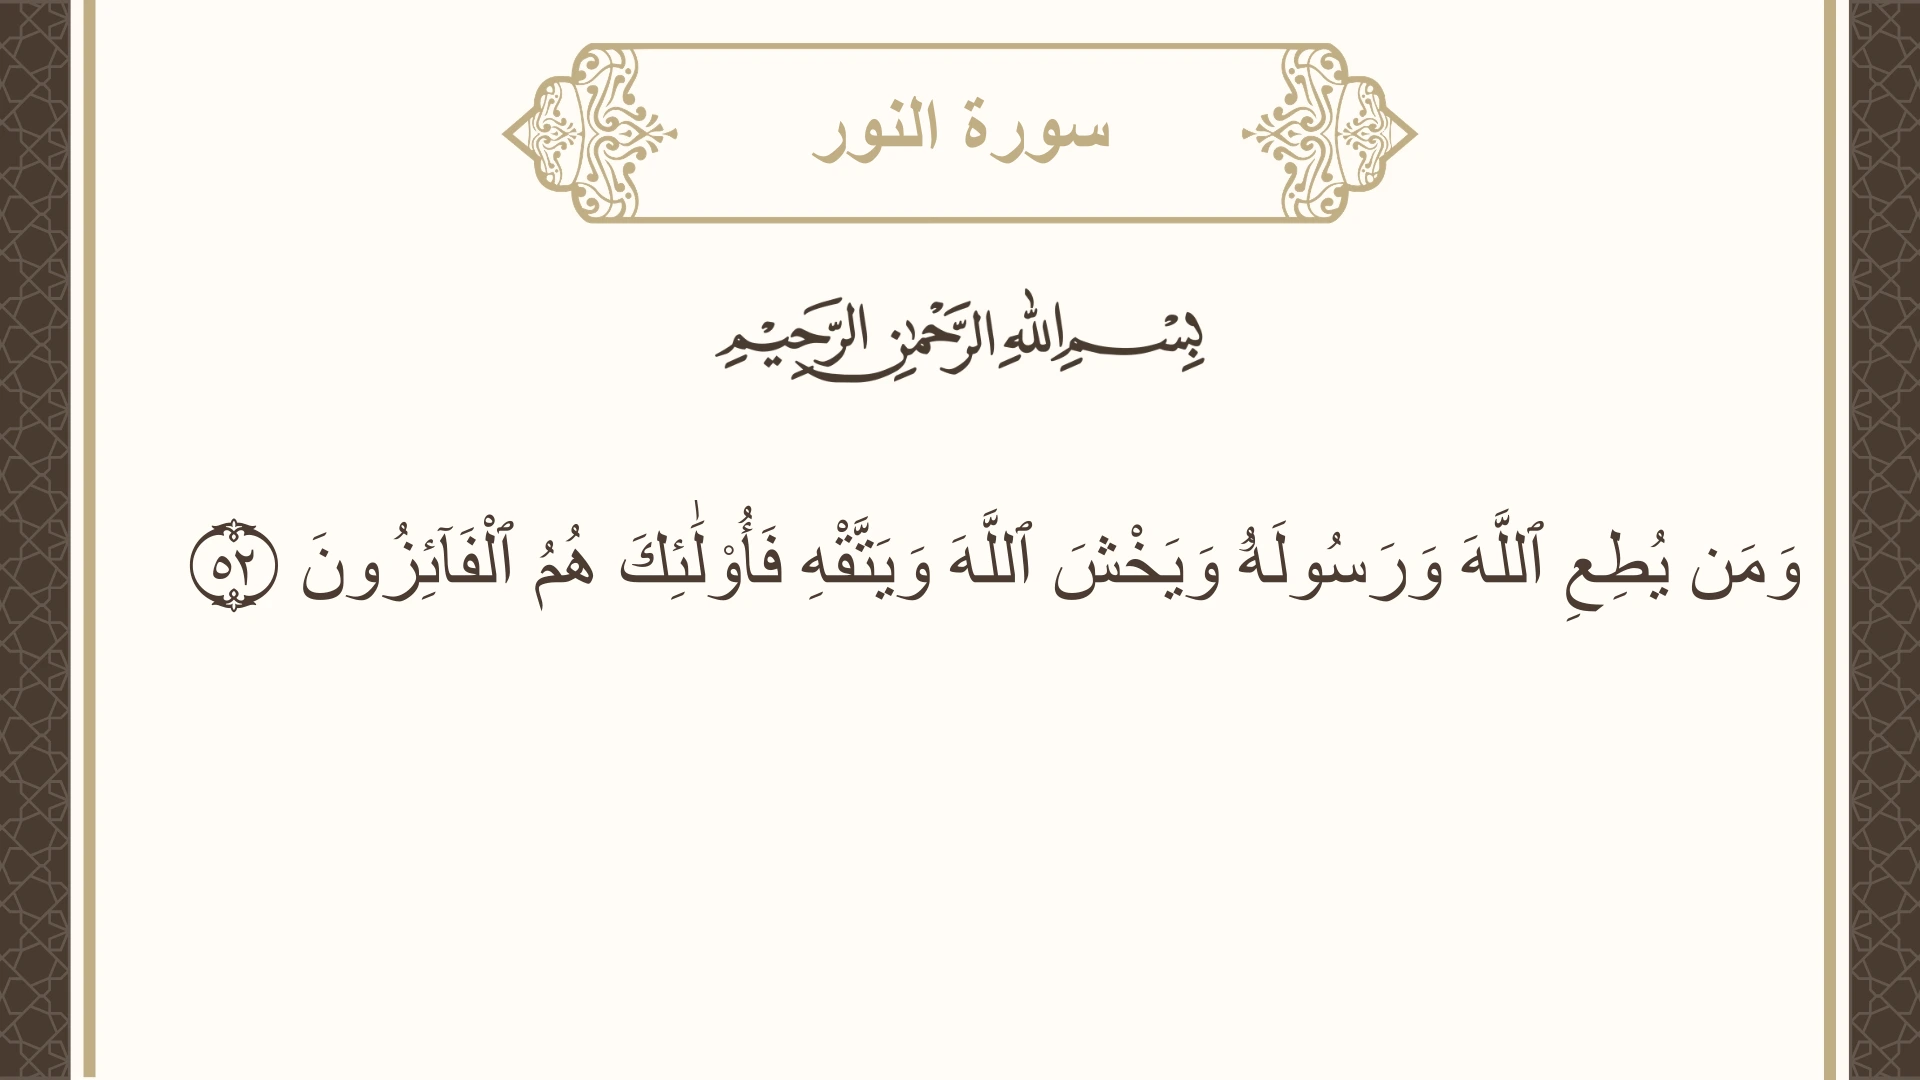 سورة النور
بِسْمِ اللهِ الرَّحْمٰنِ الرَّحِيْمِ
وَمَن يُطِعِ ٱللَّهَ وَرَسُولَهُۥ وَيَخْشَ ٱللَّهَ وَيَتَّقْهِ فَأُوْلَٰئِكَ هُمُ ٱلْفَآئِزُونَ ٥٢